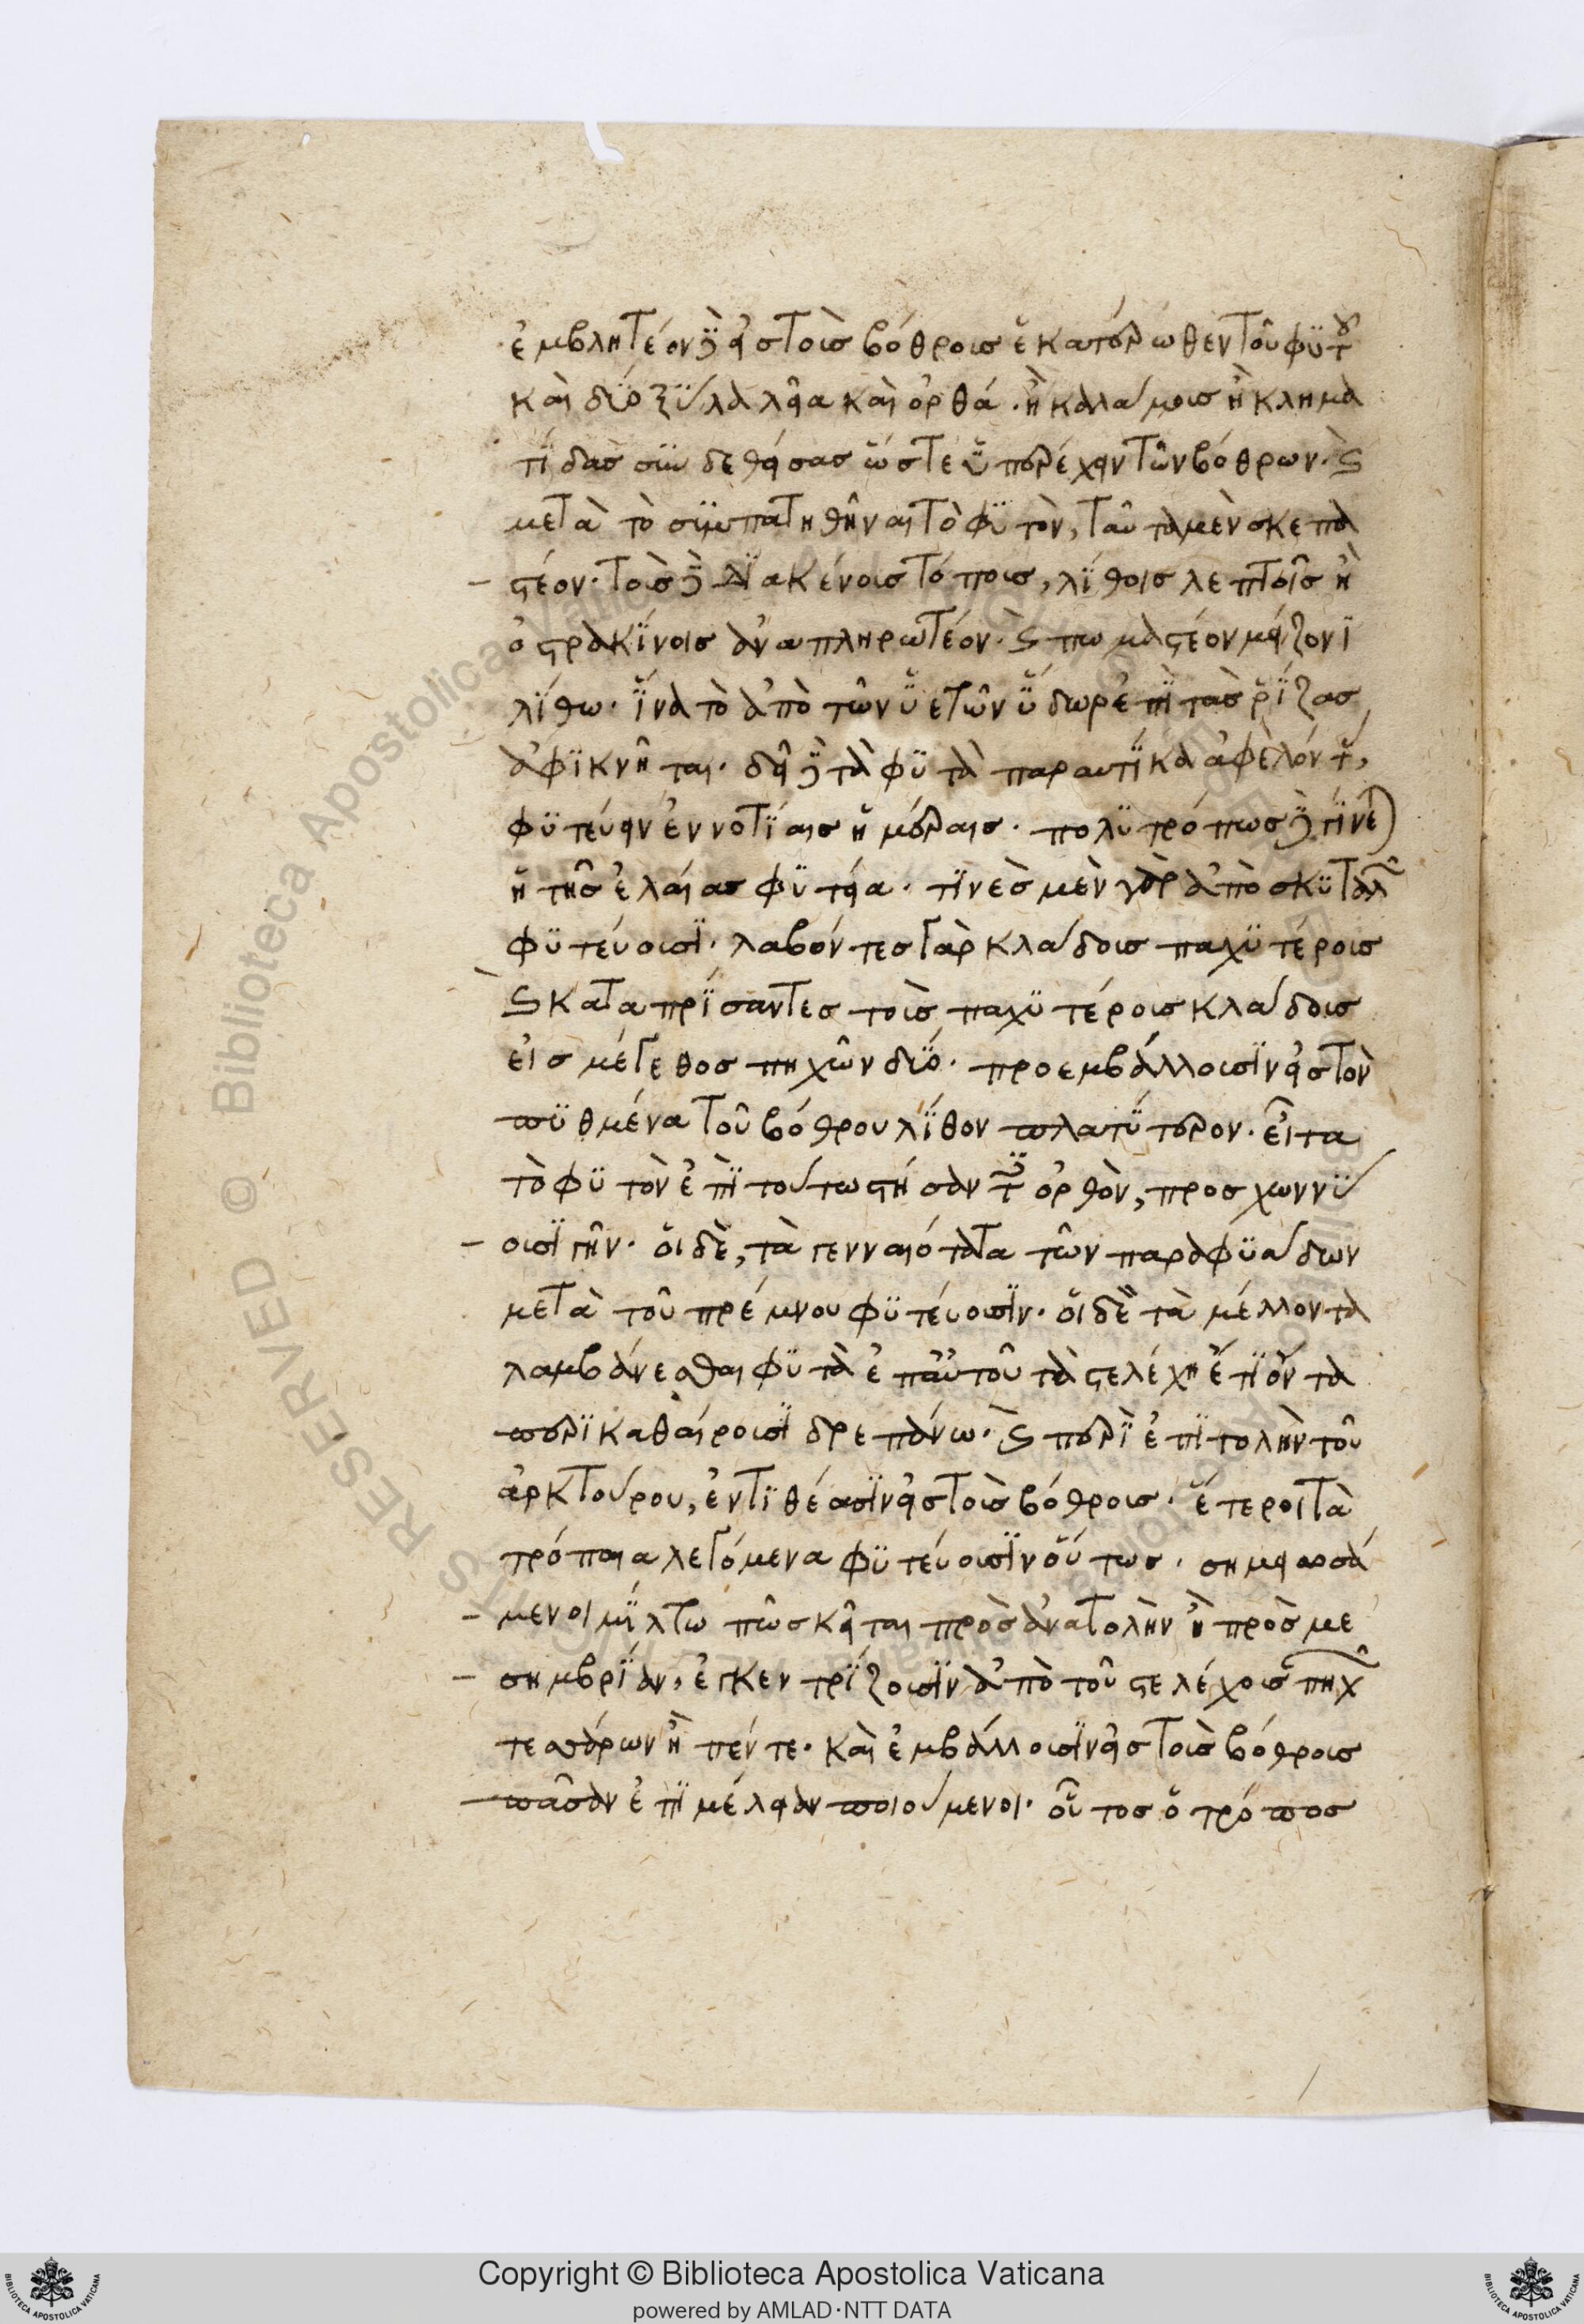 ἐμβλητέον δὲ εἰς τοὺς βόθρους ἑκατέρωθεν τοῦ φυτοῦ
καὶ δύο ξύλα λεῖα καὶ ὀρθά. ἢ καλάμους ἢ κλημα
τίδας συνδεθείσας ὥστε ὑπερέχειν τῶν βόθρων. καὶ
μετὰ τὸ συμπατηθῆναι τὸ φυτὸν, ταῦτα μὲν σκεπα
στέον. τοὺς δὲ διακένους τόπους, λίθοις λεπτοῖς ἢ
ὀστρακίνοις ἀναπληρωτέον. καὶ πωμαστέον μείζονι
λίθω. ἵνα τὸ ἀπὸ τῶν ὑετῶν ὕδωρ ἐπὶ τὰς ῥίζας
ἀφικνῆται. δεῖ δὲ τὰ φυτὰ παραυτίκα ἀφελόντας,
φυτεύειν ἐν νοτίαις ἡμέραις. πολυτρόπως δὲ γίνεται
ἡ τῆς ἐλαίας φυτεία. τινὲς μὲν γὰρ ἀπὸ σκυταλῶν
φυτεύουσι. λαβόντες γὰρ κλάδους παχυτέρους
καὶ καταπρίσαντες τοὺς παχυτέρους κλάδους
εἰς μέγεθος πηχῶν δύο. προεμβάλλουσιν εἰς τὸν
πυθμένα τοῦ βόθρου λίθον πλατύτερον. εἶτα
τὸ φυτὸν ἐπὶ τούτω στήσαντες ὀρθὸν, προσχωννύ
ουσι γῆν. οἱ δὲ, τὰ γενναιότατα τῶν παραφυάδων
μετὰ τοῦ πρέμνου φυτεύουσιν. οἱ δὲ τὰ μέλλοντα
λαμβάνεσθαι φυτὰ ἐπ' αὐτοῦ τὰ στελέχη ἔτι ὄντα
περικαθαίρουσι δρεπάνω. καὶ περὶ ἐπιτολὴν τοῦ
ἀρκτούρου, ἐντιθέασιν εἰς τοὺς βόθρους. ἕτεροι τὰ
τρόπαια λεγόμενα φυτεύουσιν οὕτως. σημειωσά
μενοι μίλτω πῶς κεῖται πρὸς ἀνατολὴν ἢ πρὸς με
σημβρίαν, ἐγκεντρίζουσιν ἀπὸ τοῦ στελέχους πηχῶν
τεσσάρων ἢ πέντε. καὶ ἐμβάλλουσιν εἰς τοὺς βόθρους
πᾶσαν ἐπιμέλειαν ποιούμενοι. οὗτος ὁ τρόπος